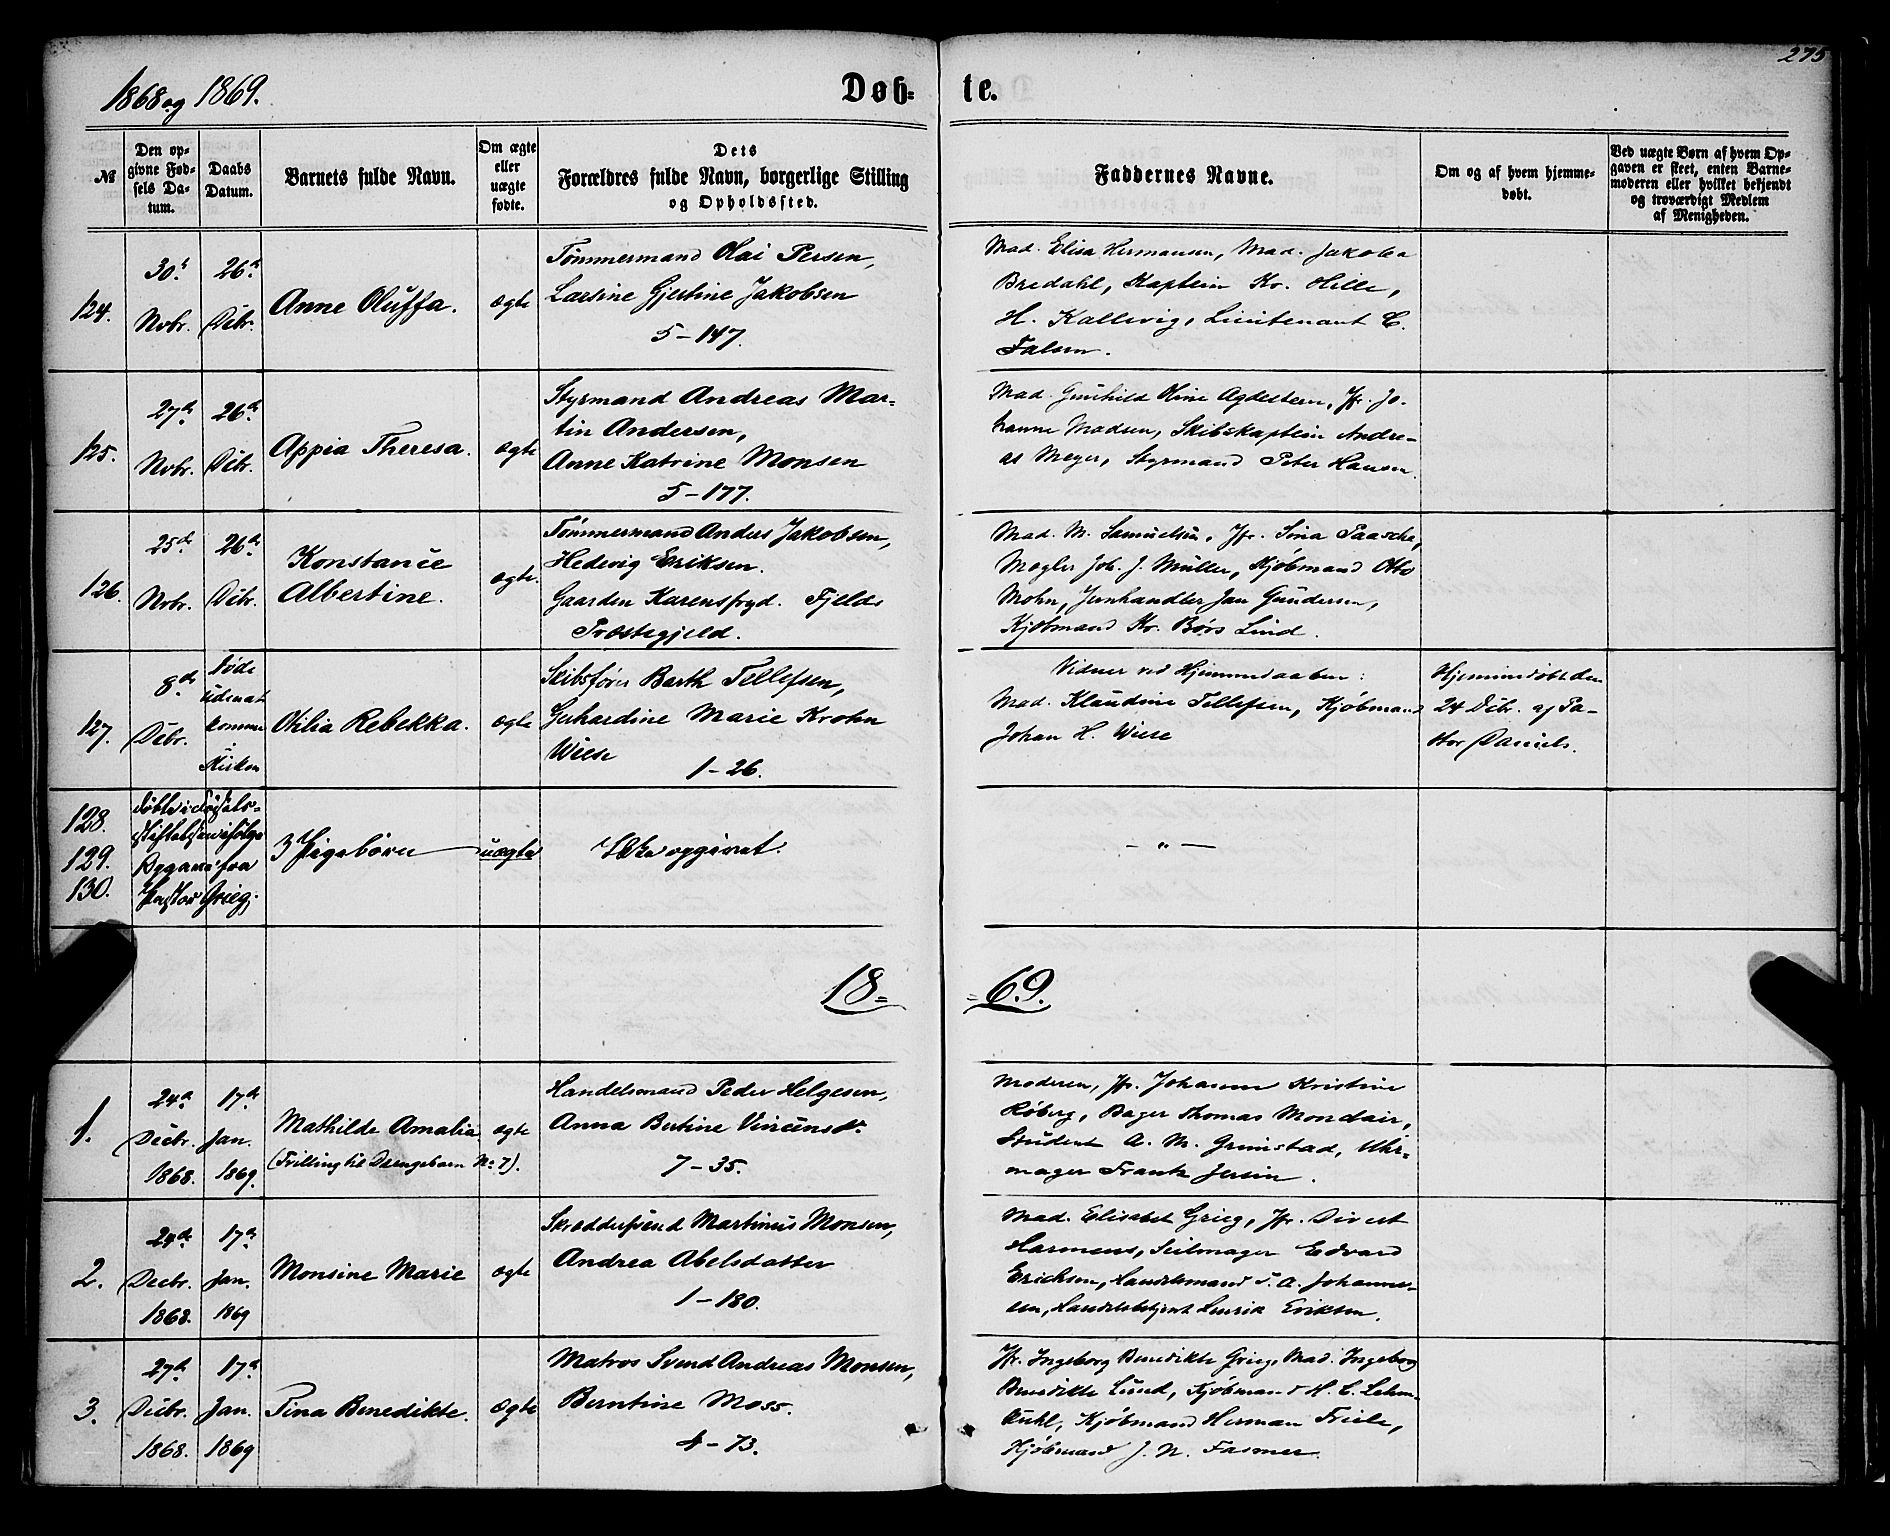 275
1868 og 1869.
Døb- te.
№
Den op-
givne Fød-
sels Da-
tum.
Daabs
Datum.
Barnets fulde Navn.
Om ægte
eller
uægte
fødte.
Dets
Forældres fulde Navn, borgerlige Stilling
og Opholdssted.
Faddernes Navne.
Om og af hvem hjemme-
døbt.
Ved uægte Børn af hvem Op-
gaven er skeet, enten Barne-
moderen eller hvilket bekjendt
og troværdigt Medlem
af Menigheden.
124.
30.
Nvbr.
26de
Dcbr.
Anne Oluffa.
ægte
Tømmermand Olai Persen,
Larsine Gjertine Jakobsen
5-147.
Mad. Elisa Hermansen, Mad. Jakoba
Bredahl, Kaptein Kr. Hille,
H. Kallevig, Lieutenant C.
Falsen.
125.
27de
Nvbr.
26de
Dcbr.
Appia Theresa.
ægte
Styrmand Andreas Mar-
tin Andersen,
Anne Katrine Monsen
5-177.
Mad. Gunhild Oline Agdestein, Jfr. Jo-
hanne Madsen, Skibskaptein Andre-
as Meyer, Styrmand Peter Hansen
126.
25de
Nvbr.
26de
Dcbr.
Konstance
Albertine.
ægte.
Tømmermand Anders Jakobsen,
Hedevig Eriksen.
Gaarden Karensfryd. Fjelds
Præstegjeld.
Mad. M. Samuelsen, Jfr. Sina Paasche,
Mægler Joh. J. Müller, Kjøbmand Otto
Mohn, Jernhandler Jan Gundersen,
Kjøbmand Kr. Børs Lind.
127.
8de
Dcbr.
Døde
udenat
komme
i
Kirken
Otilia Rebekka.
ægte
Skibsfører Barth Tellefsen,
Gerhardine Marie Krohn
Wiese
1-26.
Vidner ved Hjemmedaaben:
Mad. Klaudine Tellefsen, Kjøbmand
Johan H. Wiese
Hjemmedøbt den
24 Dcbr. af Pa-
stor Daniels.
128.
129.
130.
døbte i Fødsels-
stiftelsen ifølge
Opgave fra
Pastor Grieg.
3 Pigebørn
uægte
Ikke opgivet.
- " -
18= =69.
1.
24de
Decbr.
1868.
17de
Jan.
1869.
Mathilde Amalia
(Tvilling til Drengebarn No 7).
ægte
Handelsmand Peder Helgesen,
Anna Bertine Vincensdr.
7-35.
Moderen, Jfr. Johanne Kristine
Røberg, Bager Thomas Mondair,
Student A. M. Grimstad, Uhr-
mager Frantz Jersin.
2.
24de
Decbr.
1868.
17de
Jan.
1869
Monsine Marie
ægte
Skræddersvend Martinus Monsen,
Andrea Abelsdatter
1-180.
Mad. Elisabet Grieg, Jfr. Divert
Harmens, Seilmager Edvard
Erichsen, Handelsmand S. A. Johannes-
sen, Handelsbetjent Henrik Eriksen.
3.
27de
Dcbr.
1868.
17de
Jan.
1869
Tina Benedikte.
ægte
Matros Svend Andreas Monsen,
Berntine Moss.
4-73.
Jfr. Ingeborg Benedikte Grieg, Mad. Ingeborg
Benedikte Lund, Kjøbmand H. C. Lehm-
kuhl, Kjøbmand Herman Friele,
Kjøbmand J. N. Fasmer.